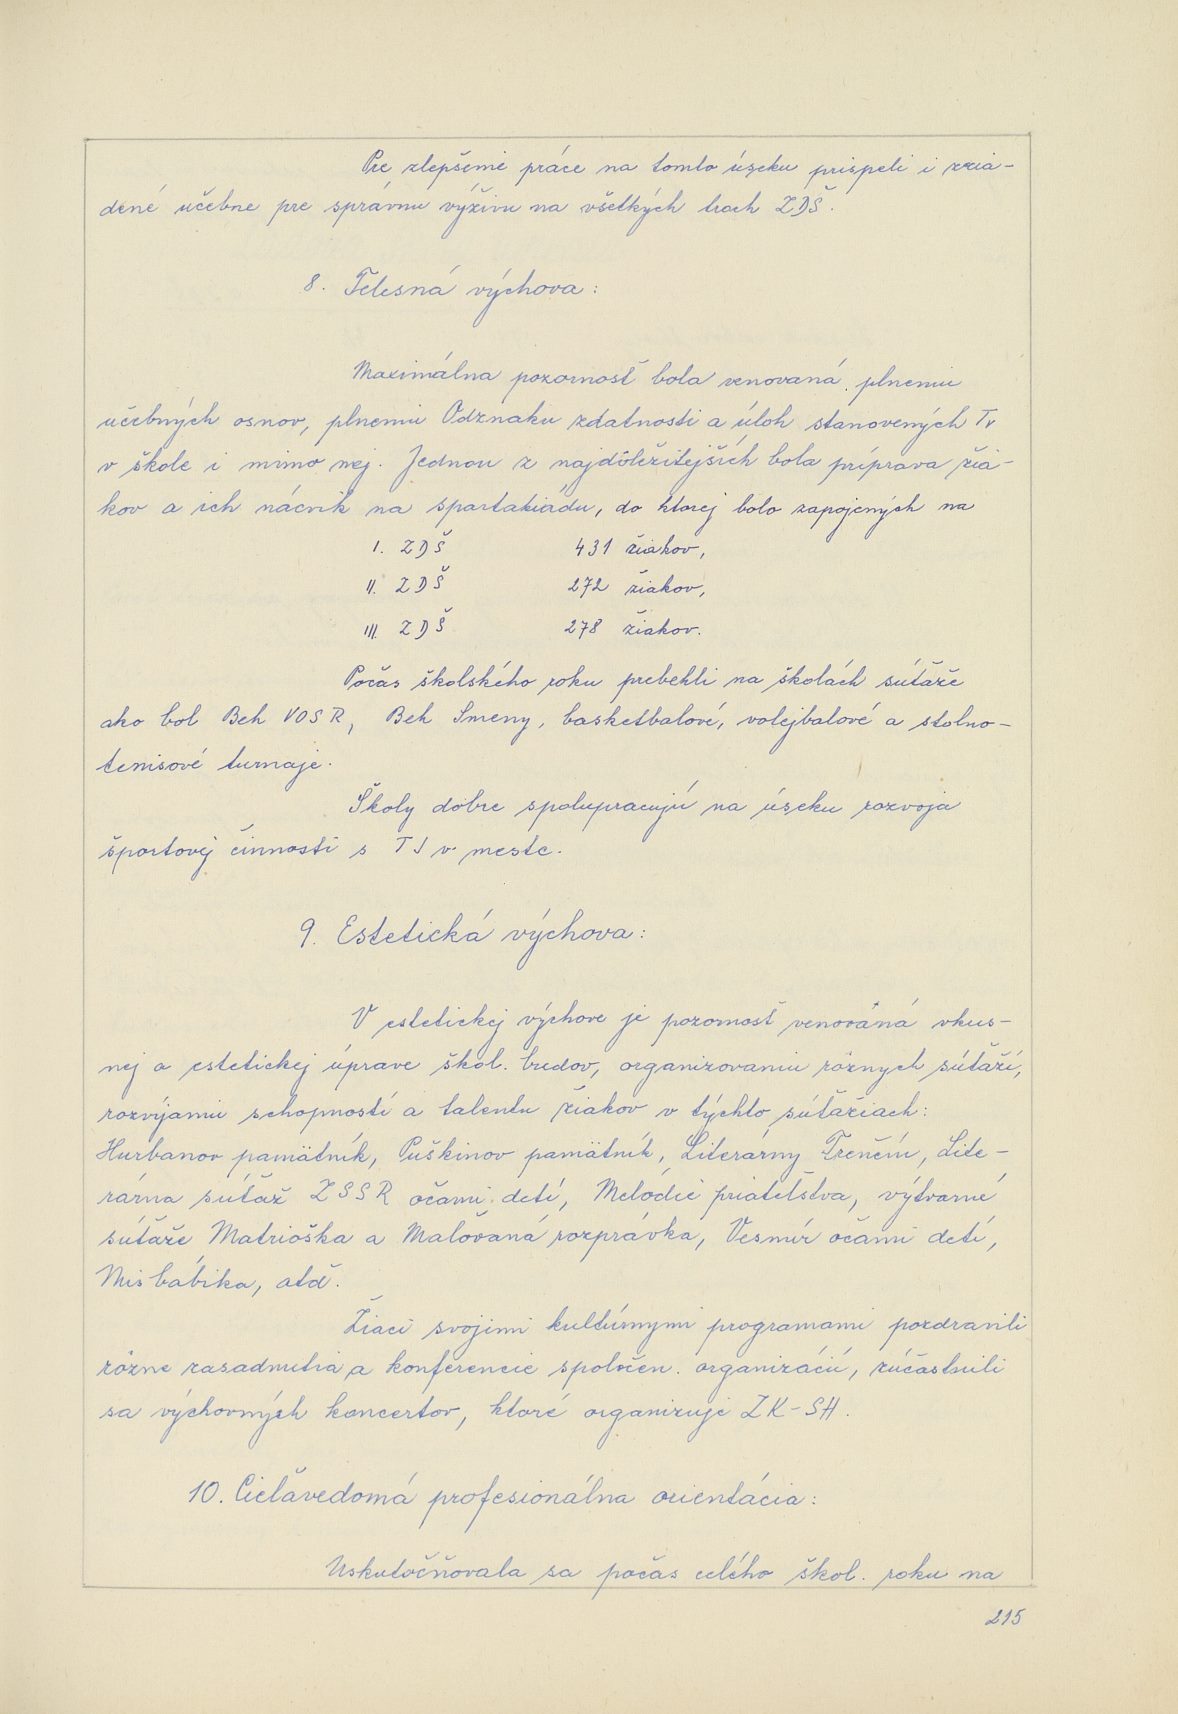 Pre zlepšenie práce na tomto úseku prispeli i zria-
dené učebne pre správnu výživu na všetkých troch ZDŠ.
8. Telesná výchova:
Maximálna pozornosť bola venovaná plneniu
učebných osnov, plneniu Odznaku zdatnosti a úloh stanovených Tv
v škole i mimo nej. Jednou z najdôležitejších bola príprava žia-
kov a ich nácvik na spartakiádu, do ktorej bolo zapojených na
I. ZDŠ 431 žiakov,
II. ZDŠ 272 žiakov,
III. ZDŠ 278 žiakov.
Počas školského roku prebehli na školách súťaže
ako bol Beh VOSR, Beh Smeny, basketbalové, volejbalové a stolno-
tenisové turnaje.
Školy dobre spolupracujú na úseku rozvoja
športovej činnosti s TJ v meste.
9. Estetická výchova:
V estetickej výchove je pozornosť venováná vkus-
nej a estetickej úprave škol. budov, organizovaniu rôznych súťaží,
rozvíjaniu schopností a talentu žiakov v týchto súťažiach:
Hurbanov pamätník, Puškinov pamätník, Literárny Trenčín, Lite-
rárna súťaž ZSSR očami detí, Melódie priateľstva, výtvarné
súťaže Matrioška a Maľovaná rozprávka, Vesmír očami detí,
Mis bábika, atď.
Žiaci svojimi kultúrnymi programami pozdravili
rôzne zasadnutia a konferencie spoločen. organizácií, zúčastnili
sa výchovných koncertov, ktoré organizuje ZK-SH.
10. Cieľavedomá profesionálna orientácia:
Uskutočňovala sa počas celého škol. roku na
215